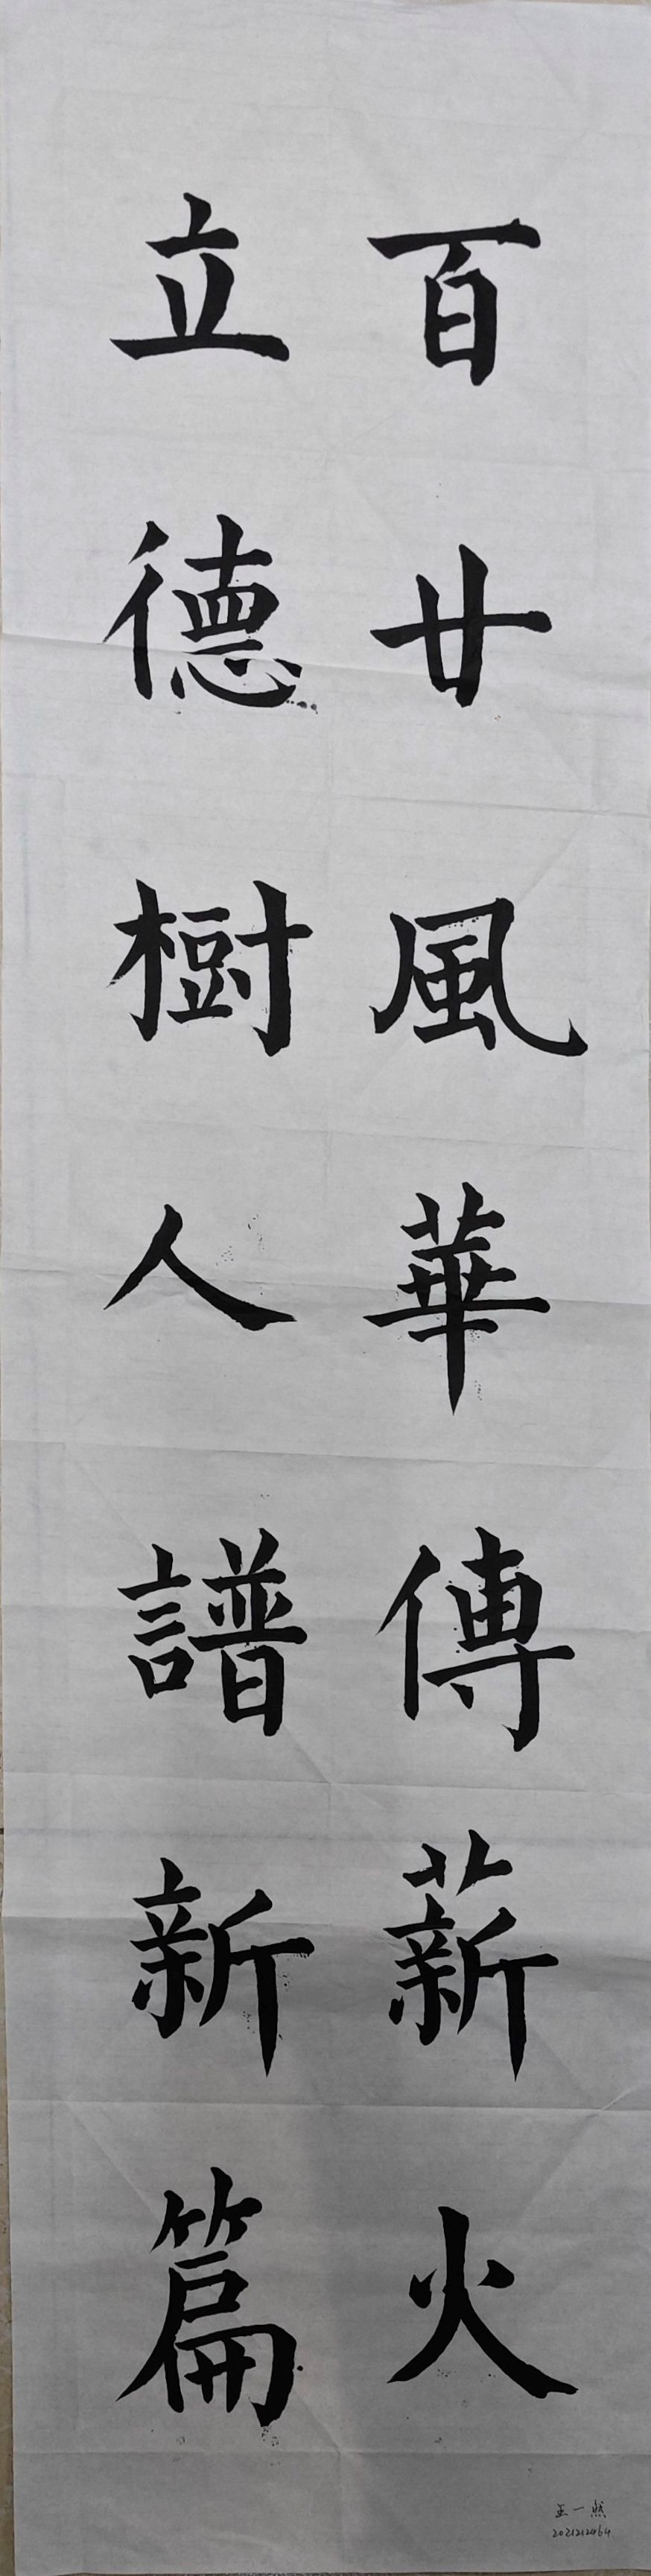 百廿風華傳薪火
立德樹人譜新篇
王一然
2021212464